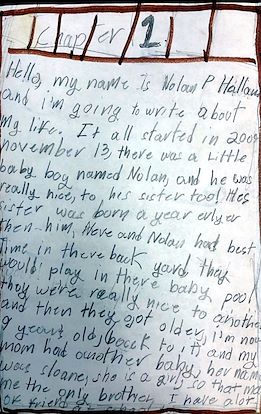 Chapter 1
Hello, my name Is Nolan P
and i'm going to write about
my life. It all started in
november 13, there was a Little
baby boy named Nolan, and he was
really nice, to, his sister too! Hes
sister was born a year erlyer
then him, Neve and Nolan had best
time in there back yard they
would play in there baby pool
they were really nice to another
and then they got older, i'm now
9 years old, back to it and my
mom had another baby, her name
was Sloane, she is a girl so that
me the only brother, I have alot
or friends at